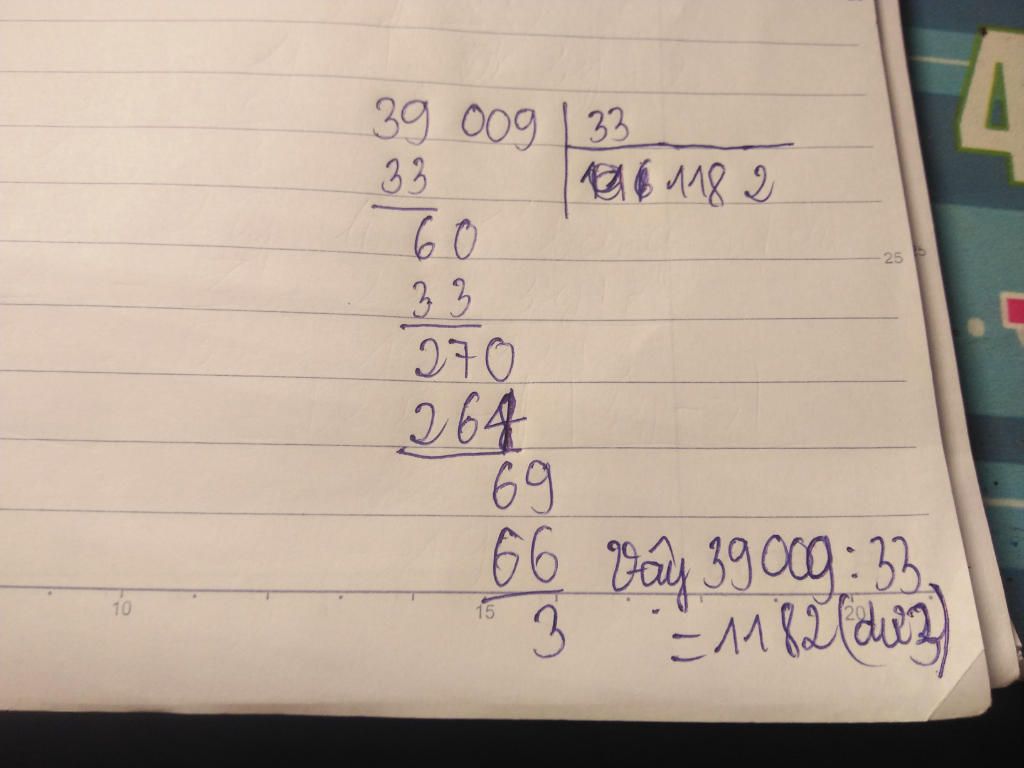 39 009 33
33 118 2
60
33
270
264
69
66 Vây 39 009 : 33
3 = 1182 (dư 3)
25
10 15 20
4